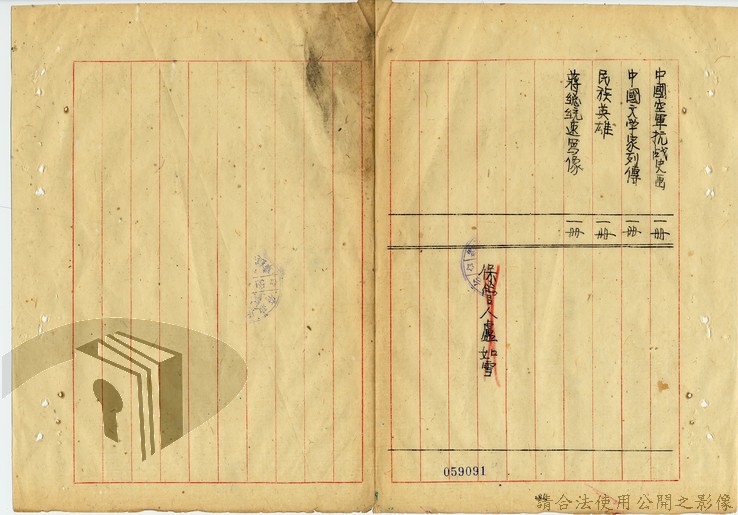 中國空軍抗战史画 一册
中國文学家列傳 一册
民族英雄 一册
蔣總統速寫像 一册
保管人盧如雪
059091
請合法使用公開之影像